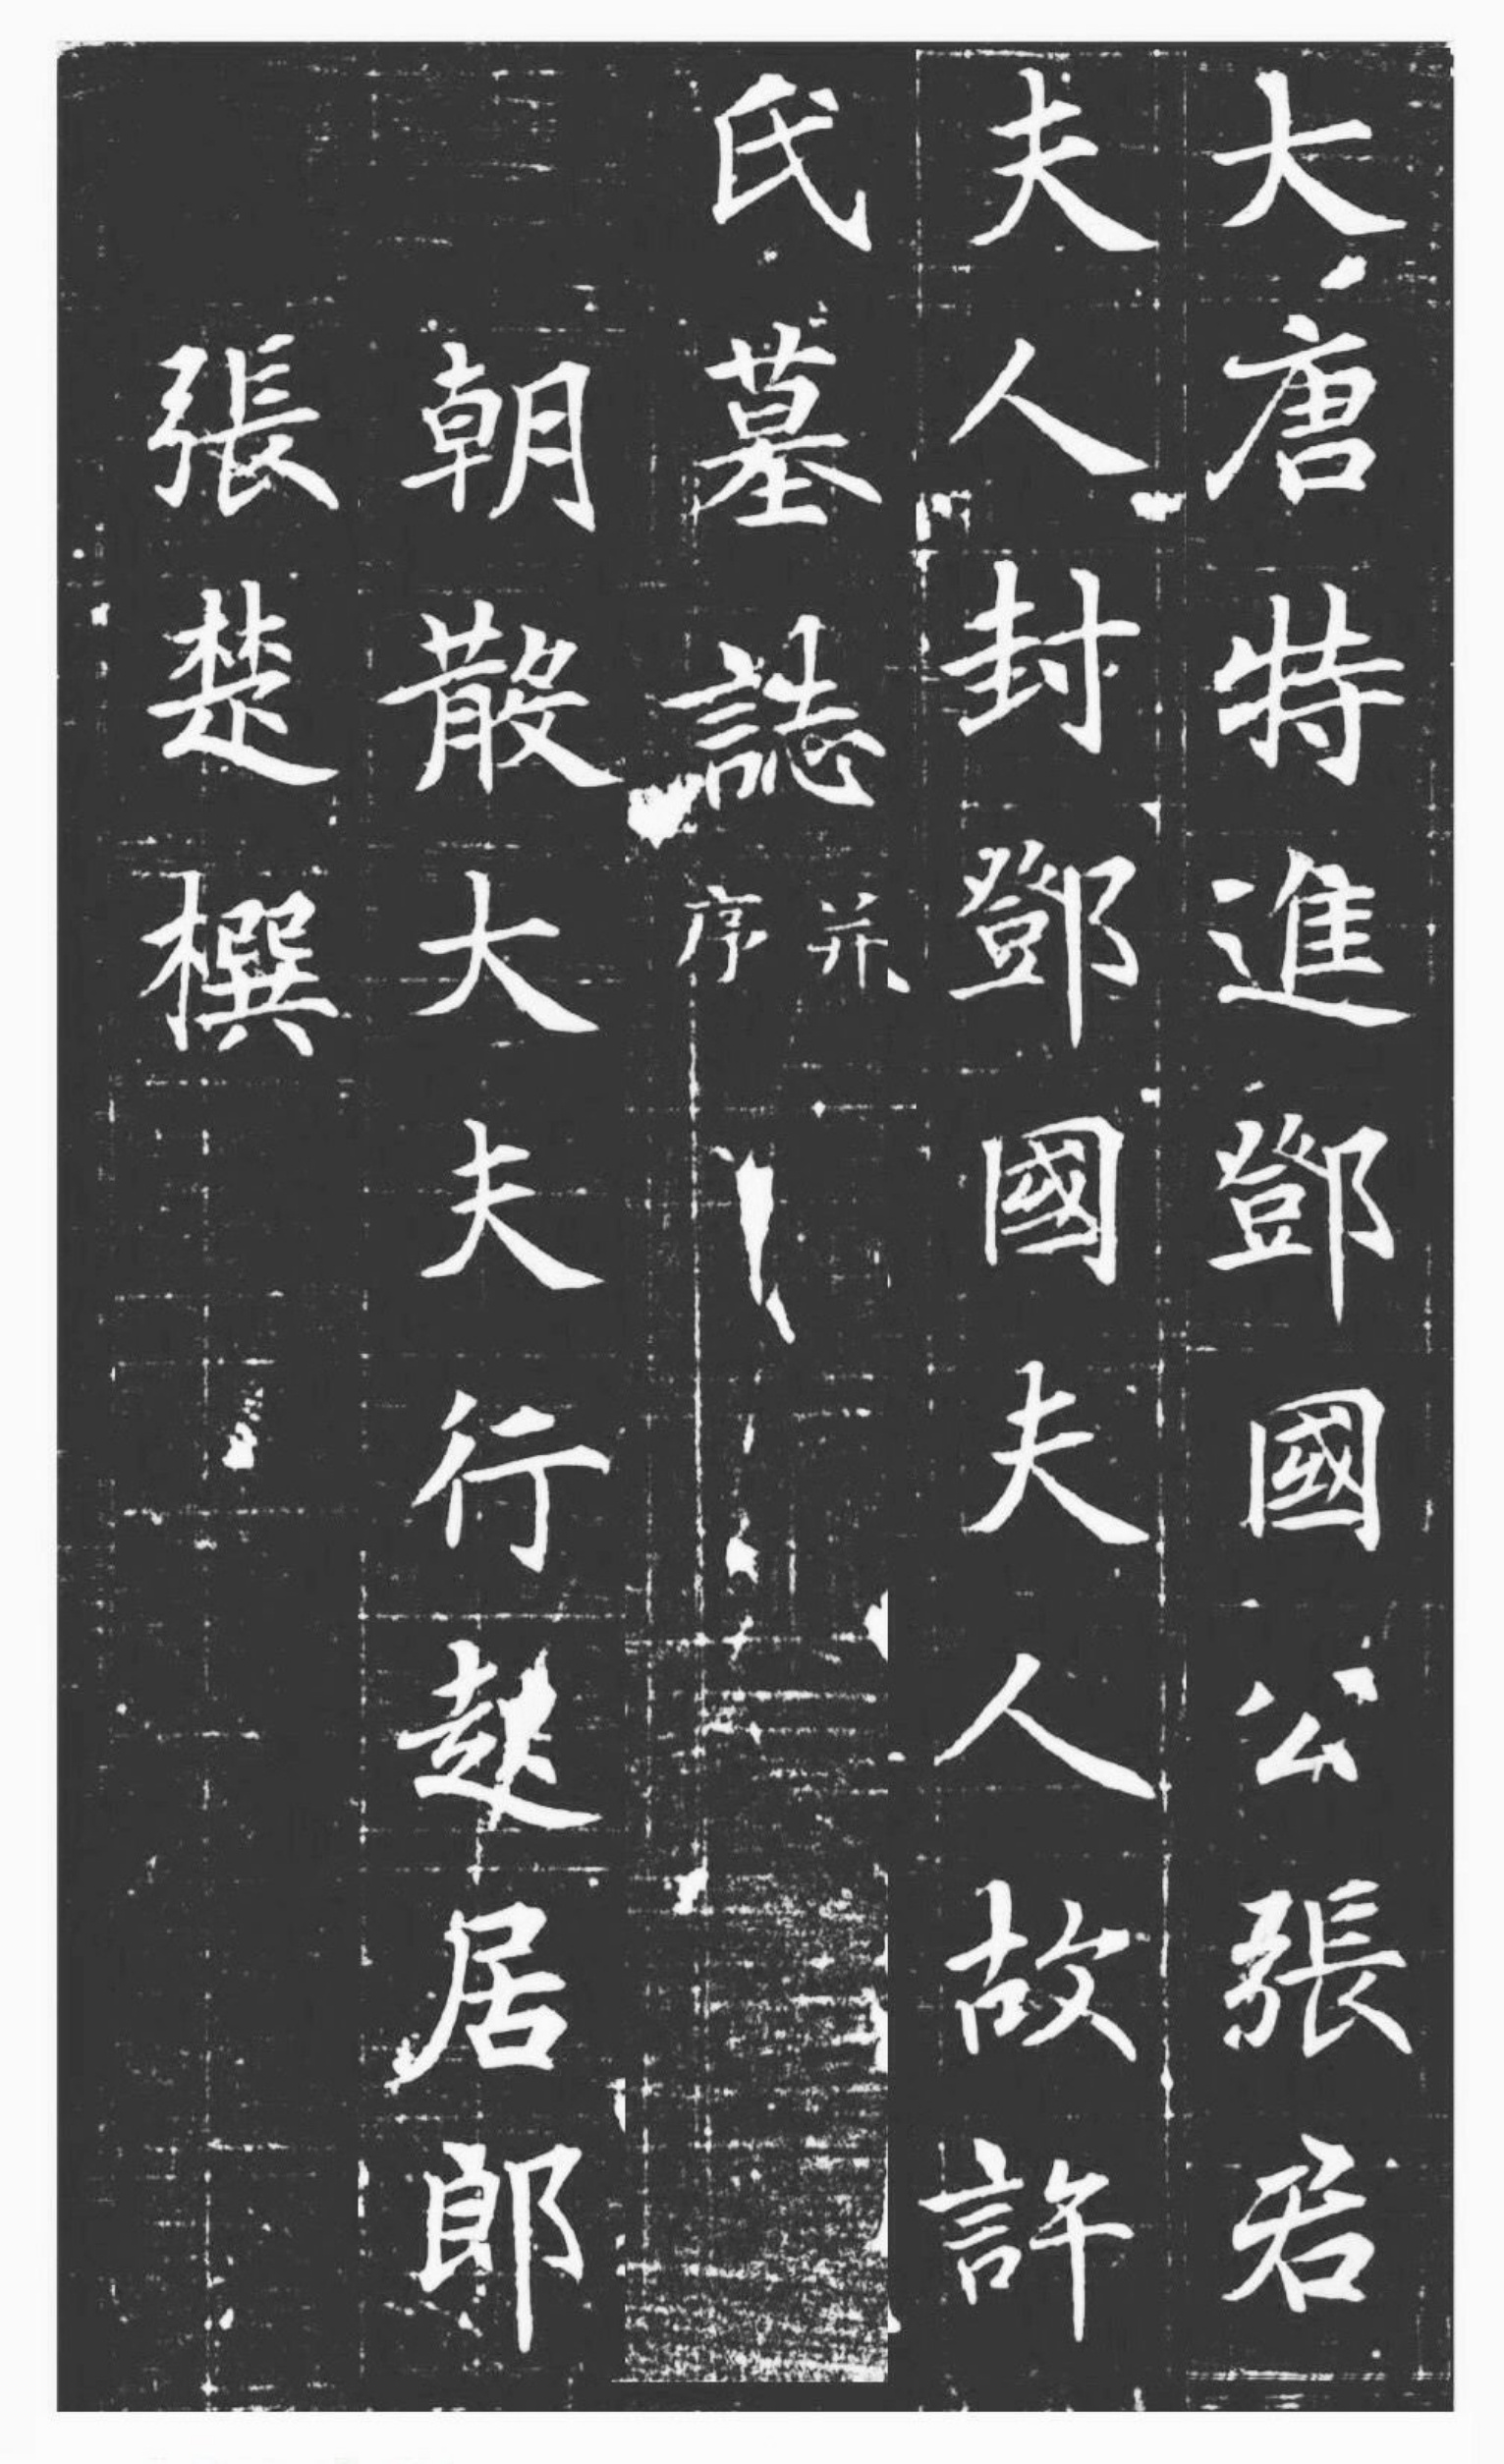 大唐特進鄧國公張君
夫人封鄧國夫人故許
氏墓誌并序
朝散大夫行起居郎
張楚撰